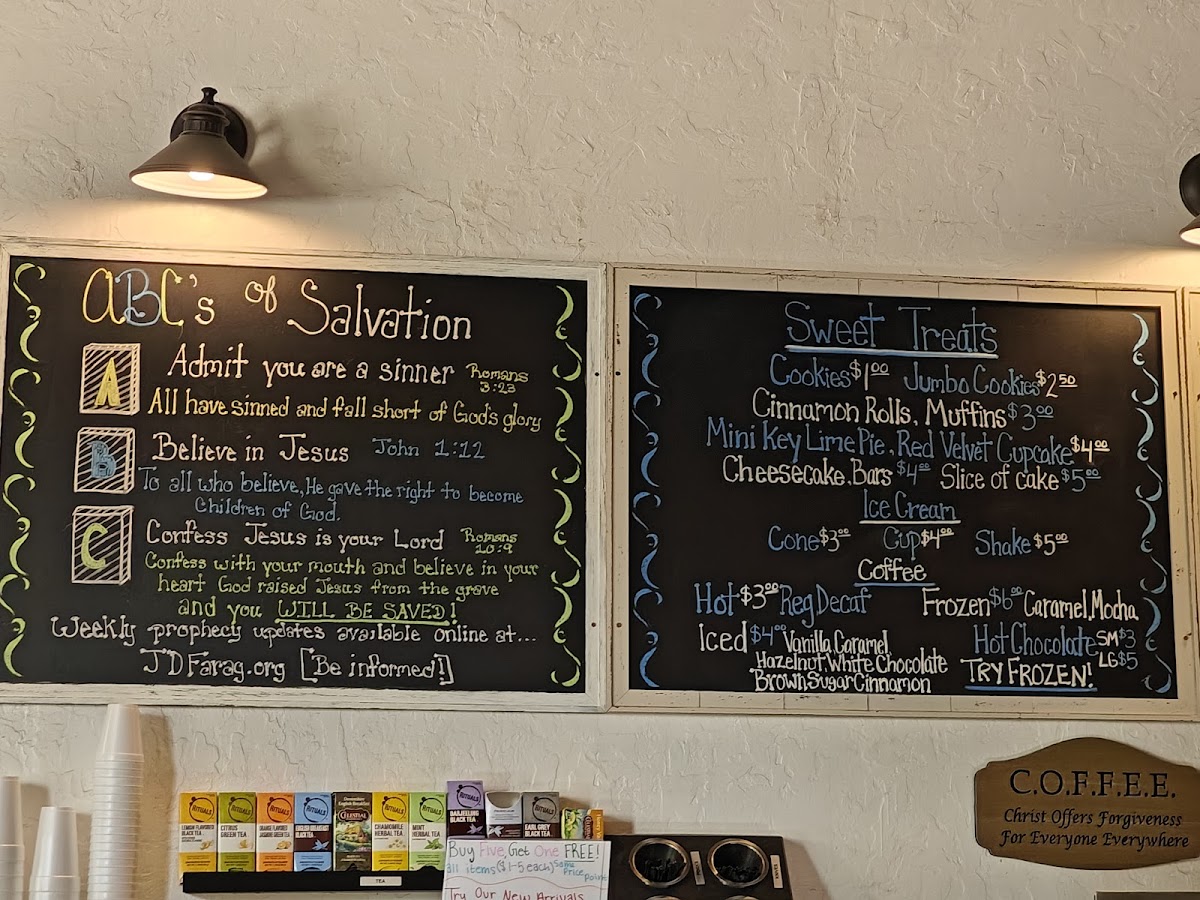 ABC's of Salvation
A Admit you are a sinner Romans 3:23
All have sinned and fall short of God's glory
B Believe in Jesus John 1:12
To all who believe, He gave the right to become
Children of God.
C Confess Jesus is your Lord Romans 10:9
Confess with your mouth and believe in your
heart God raised Jesus from the grave
and you WILL BE SAVED!
Weekly prophecy updates available online at...
JDFarag.org [Be informed!]
Sweet Treats
Cookies $1.00 Jumbo Cookies $2.50
Cinnamon Rolls, Muffins $3.00
Mini Key Lime Pie, Red Velvet Cupcake $4.00
Cheesecake, Bars $4.00 Slice of cake $5.00
Ice Cream
Cone $3.00 Cup $4.00 Shake $5.00
Coffee
Hot $3.00 Reg Decaf Frozen $6.00 Caramel, Mocha
Iced $4.00 Vanilla, Caramel,
Hazelnut, White Chocolate
Brown Sugar Cinnamon
Hot Chocolate SM $3
LG $5
TRY FROZEN!
C.O.F.F.E.E.
Christ Offers Forgiveness
For Everyone Everywhere
RITUALS
LEMON FLAVORED
BLACK TEA
RITUALS
CITRUS
GREEN TEA
RITUALS
ORANGE FLAVORED
JASMINE GREEN TEA
RITUALS
ENGLISH BREAKFAST
BLACK TEA
English Breakfast
CELESTIAL
RITUALS
CHAMOMILE
HERBAL TEA
RITUALS
MINT
HERBAL TEA
RITUALS
DARJEELING
BLACK TEA
RITUALS
EARL GREY
BLACK TEA
TEA
Buy Five, Get One FREE!
all items ($1-5 each) Same Price point
Try Our New Arrivals